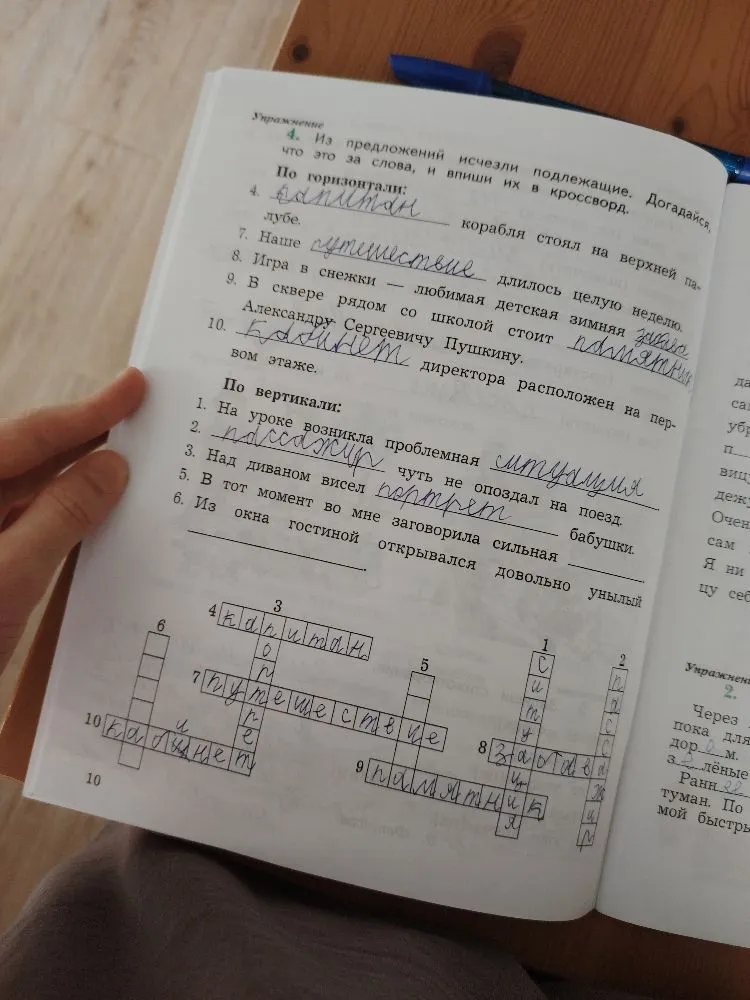 Упражнение
4. Из предложений исчезли подлежащие. Догадайся,
что это за слова, и впиши их в кроссворд.
По горизонтали:
4. капитан корабля стоял на верхней па-
лубе.
7. Наше путешествие длилось целую неделю.
8. Игра в снежки — любимая детская зимняя забава
9. В сквере рядом со школой стоит памятник
Александру Сергеевичу Пушкину.
10. Кабинет директора расположен на пер-
вом этаже.
По вертикали:
1. На уроке возникла проблемная ситуация
2. пассажир чуть не опоздал на поезд.
3. Над диваном висел портрет бабушки.
5. В тот момент во мне заговорила сильная
6. Из окна гостиной открывался довольно унылый
.
6
4 3
капитан
5
1
2
7 путешествие
10 кабинет
8 забава
9 памятник
портрет
ситуация
пассажир
10
да
сам
убр
п
вицу
деж
Очен
сам
Я ни
цу себ
Упражнени
2.
Через
пока для
дор о м.
з лёные
Ранн
туман. По
мой быстры